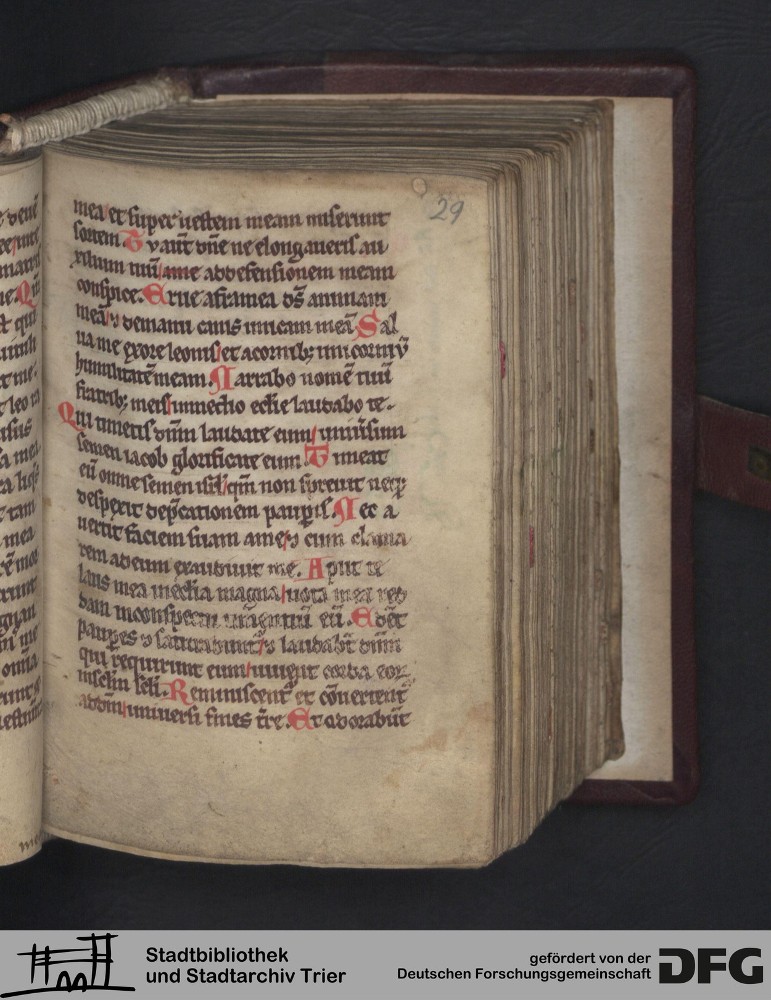 29
mea et super uestem meam miserunt
sortem Tu aut dn̄e ne elongaueris au
xilium tuū ame addefensionem meam
conspice. Erue aframea ds̄ animam
meā de manu canis unicam meā Sal
ua me exore leonis et acornibꝫ unicorniū
humilitatē meam Narrabo nomē tuū
fratribꝫ meis inmedio ecc̄ie laudabo te.
Qui timetis dūm laudate eum uniūsum
semen iacob glorificate eum. Timeat
eū omne semen isrl̄ qm̄ non spreuit neqꝫ
despexit dep̄cationem paupis. Nec a
uertit faciem suam ame cum clama
rem adeum exaudiuit me. Aput te
laus mea
dam inconspectu eū. Edēt
paupes saturabunt laudabt̄ dūm
qui requirunt eum uiuent corda eoꝝ
insclm̄ scli. Reminiscent̄ et cōuertent̄
addūm uniuersi fines tr̄e. Et adorabūt
Stadtbibliothek
und Stadtarchiv Trier
gefördert von der
Deutschen Forschungsgemeinschaft
DFG